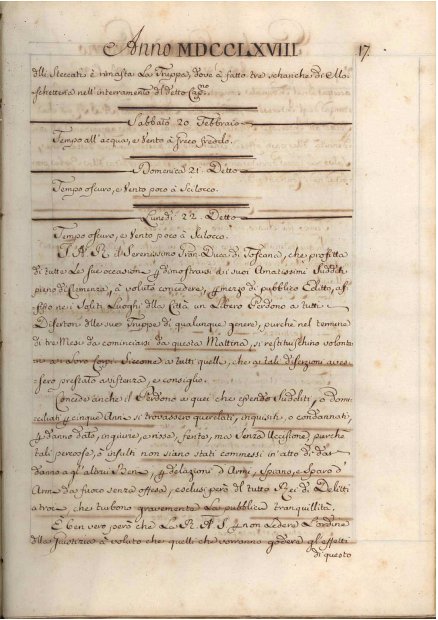 Anno MDCCLXVIII 17
dlli Steccati è rimasta La Truppa, dove à fatto tre scariche di Mo-
schetteria nell'interramento di detto Cap.no
Sabbato 20. Febbraio
Tempo all'acqua, e Vento à Greco freddo.
Domenica 21. Detto
Tempo oscuro, e Vento poco à Scilocco.
Lunedì 22. Detto
Tempo oscuro, e Vento poco à Scilocco.
S. A. R. il Serenissimo Gran Duca di Toscana, che profitta
di tutte Le sue occasioni p dimostrarsi di i suoi Amatissimi Sudditi
pieno di Clemenza, à voluto concedere, p mezzo di pubblico Editto, af-
fisso nei Soliti Luoghi dlla Città un Libero Perdono a tutti i
Disertori dlle sue Truppe di qualunque genere, purchè nel termine
di tre Mesi da cominciarsi da questa Mattina, si restituischino volonta-
ri a i Loro Corpi, Siccome a tutti quelli, che a i tali diserzioni aves-
sero prestato assistenza, e consiglio.
Concede anche il Perdono a quei che essendo Sudditi, o domi-
ciliati p cinque Anni si trovassero querelati, inquisiti, o condannati,
p danno dato, ingiurie, e risse, ferite, ma Senza Uccisione, purche
tali percosse, o insulti non siano stati commessi in atto di far
danno a gl'altrui Beni, p delazioni d'Armi, Spiano, e Sparo d'
Arme da fuoco senza offesa, esclusi però dl tutto Rei di Delitti
atroci, che turbono gravemente La pubblica tranquillità.
È ben vero, però che La R. A. S. p non Ledere L'ordine
dlla Giustizia à voluto che quelli che vorranno godere gl'effetti
di questo